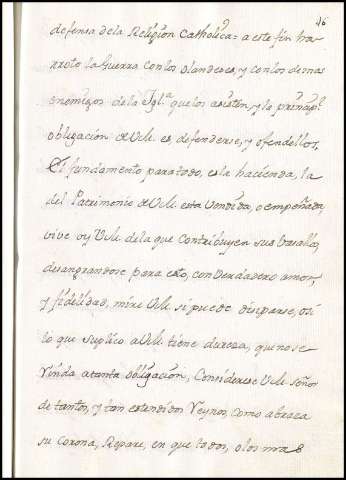 46
defensa de la Religion Catholica = a este fin ha
roto la Guerra con los olandeses, y con los demas
enemigos de la Igl.ª que los asisten, y la prinçipl
obligaçion de V.M. es, defenderse, y ofendellos,
El fundamento para todo, es la haçienda, la
del Patrimonio de V.M. esta vendida, o empeñada
vive oy V.M. de la que contribuyen sus Vasallos,
desangrandose para esto, con verdadero amor,
y fidelidad, mire V.M. si puede disiparse, o si
lo que suplico a V.M. tiene dureza, que no se
Venda a tanta obligaçion, Considerese V.M. señor
de tantos, y tan estendidos Reynos, como abraza
su Corona, Repare, en que todos, o los mas